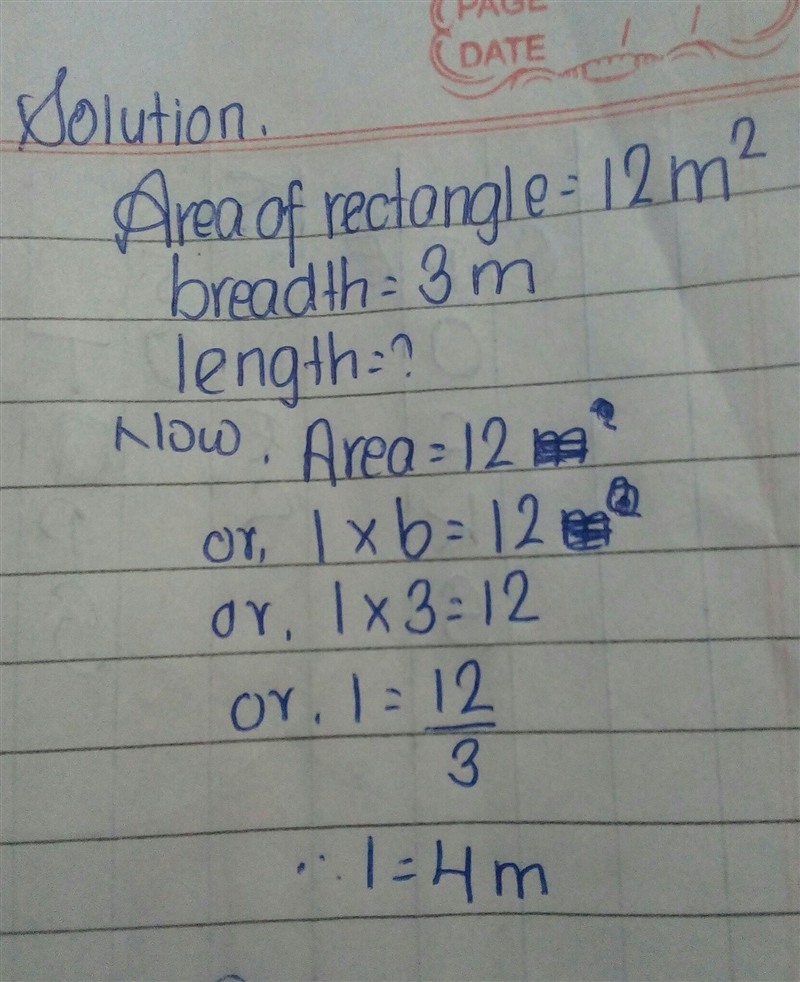 PAGE
DATE / /
Solution.
Area of rectangle = 12 m²
breadth = 3 m
length = ?
Now, Area = 12
or, l × b = 12
or, l × 3 = 12
or, l = 12/3
∴ l = 4 m